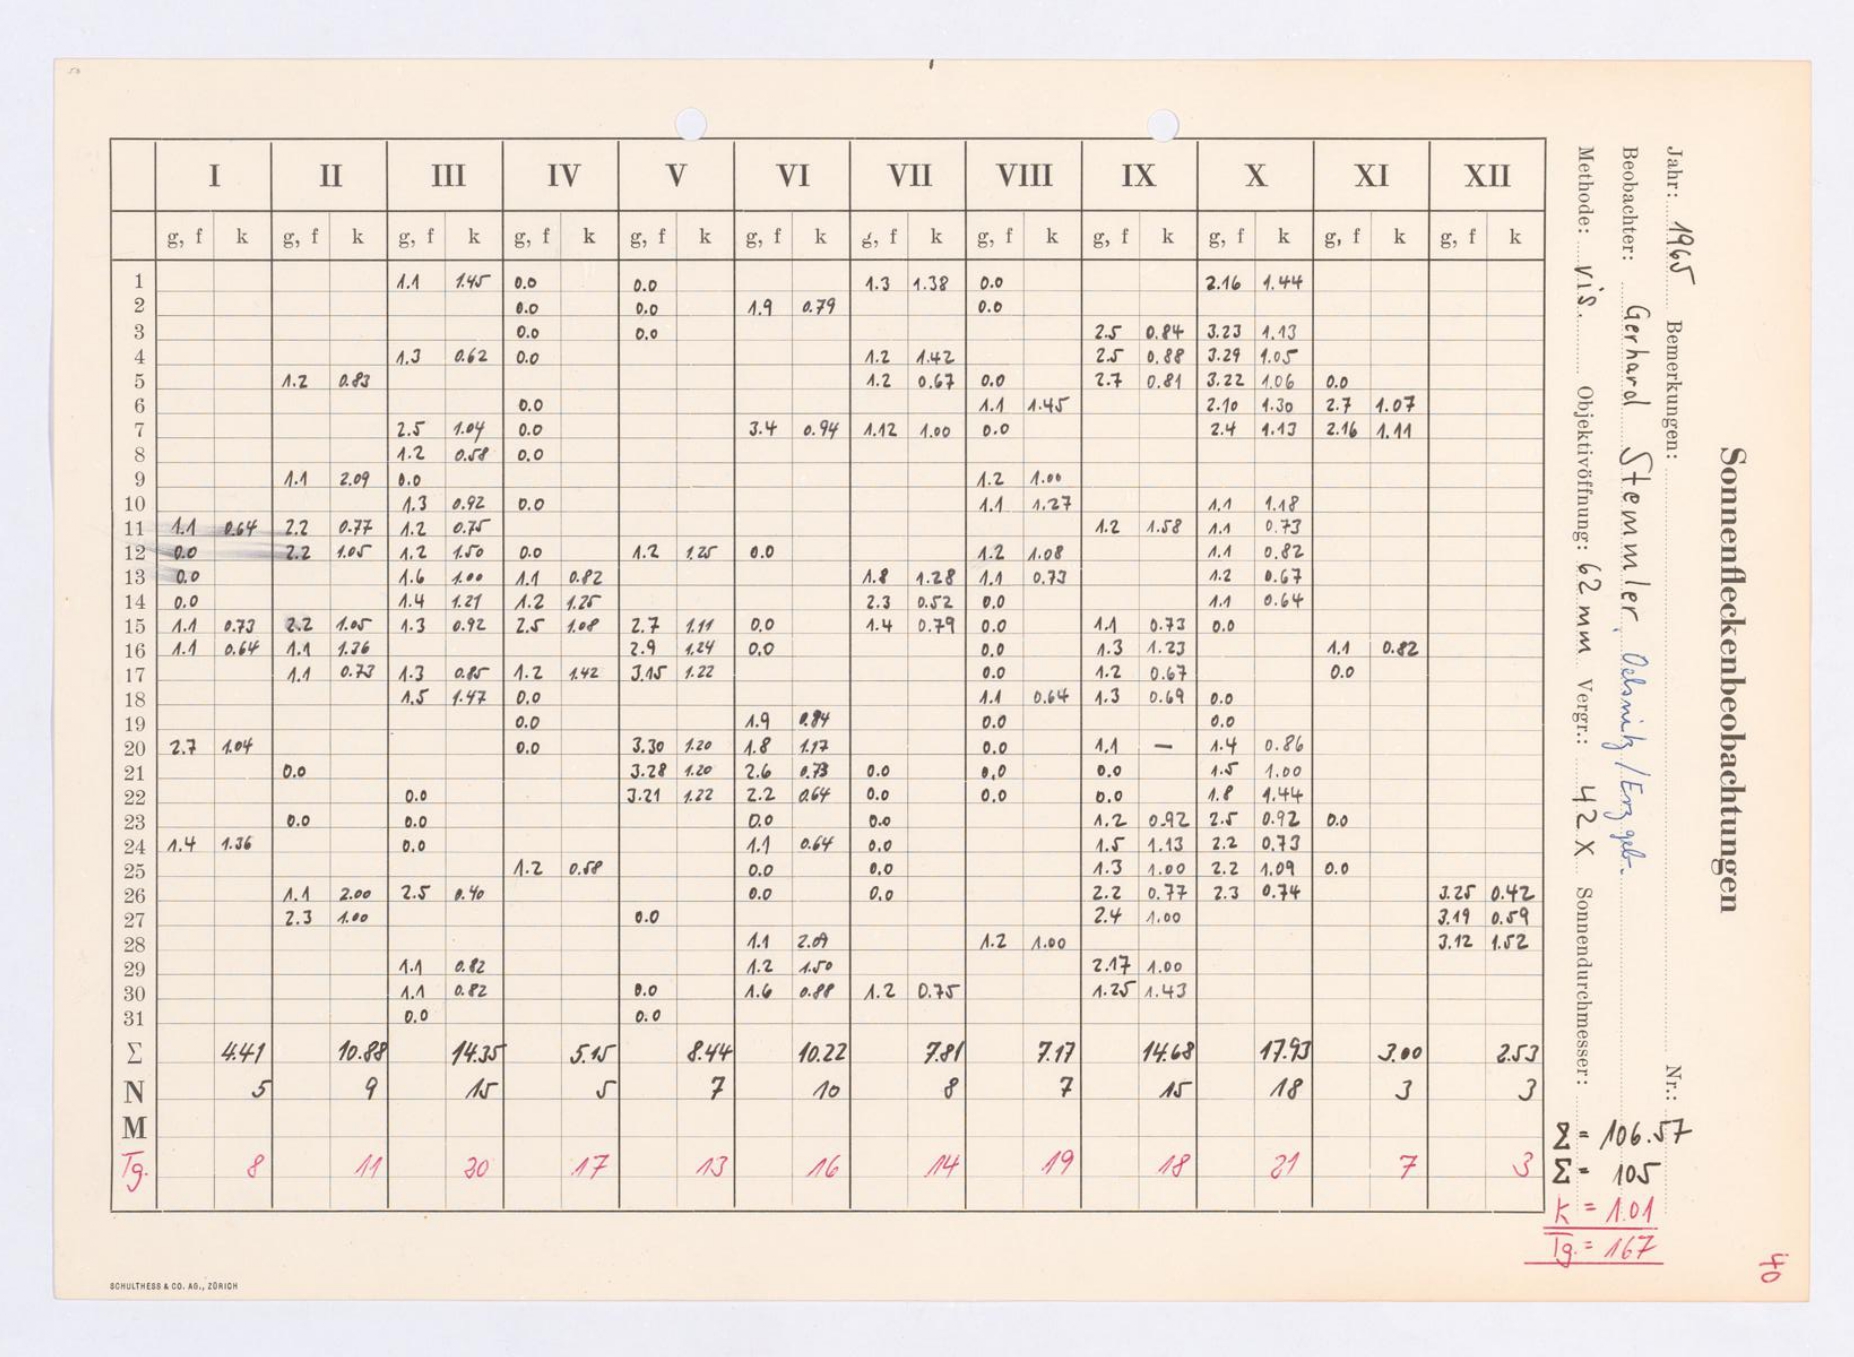 Sonnenfleckenbeobachtungen
Jahr: 1965 Bemerkungen: Nr.:
Beobachter: Gerhard Stemmler, Oelsnitz/Erzgeb.
Methode: vis. Objektivöffnung: 62 mm Vergr.: 42 X Sonnendurchmesser:
I II III IV V VI VII VIII IX X XI XII
g, f k g, f k g, f k g, f k g, f k g, f k g, f k g, f k g, f k g, f k g, f k g, f k
1 1.1 1.45 0.0 0.0 1.3 1.38 0.0 2.16 1.44
2 0.0 0.0 1.9 0.79 0.0
3 0.0 0.0 2.5 0.84 3.23 1.13
4 1.3 0.62 0.0 1.2 1.42 2.5 0.88 3.29 1.05
5 1.2 0.83 1.2 0.67 0.0 2.7 0.81 3.22 1.06 0.0
6 0.0 1.1 1.45 2.10 1.30 2.7 1.07
7 2.5 1.04 0.0 3.4 0.94 1.12 1.00 0.0 2.4 1.13 2.16 1.11
8 1.2 0.58 0.0
9 1.1 2.09 0.0 1.2 1.00
10 1.3 0.92 0.0 1.1 1.27 1.1 1.18
11 1.1 0.64 2.2 0.77 1.2 0.75 1.2 1.58 1.1 0.73
12 0.0 2.2 1.05 1.2 1.50 0.0 1.2 1.25 0.0 1.2 1.08 1.1 0.82
13 0.0 1.6 1.00 1.1 0.82 1.8 1.28 1.1 0.73 1.2 0.67
14 0.0 1.4 1.21 1.2 1.25 2.3 0.52 0.0 1.1 0.64
15 1.1 0.73 2.2 1.05 1.3 0.92 2.5 1.08 2.7 1.11 0.0 1.4 0.79 0.0 1.1 0.73 0.0
16 1.1 0.64 1.1 1.36 2.9 1.24 0.0 0.0 1.3 1.23 1.1 0.82
17 1.1 0.73 1.3 0.85 1.2 1.42 3.15 1.22 0.0 1.2 0.67 0.0
18 1.5 1.47 0.0 1.1 0.64 1.3 0.69 0.0
19 0.0 1.9 0.84 0.0 0.0
20 2.7 1.04 0.0 3.30 1.20 1.8 1.17 0.0 1.1 — 1.4 0.86
21 0.0 3.28 1.20 2.6 0.73 0.0 0.0 0.0 1.5 1.00
22 0.0 3.21 1.22 2.2 0.64 0.0 0.0 0.0 1.8 1.44
23 0.0 0.0 0.0 0.0 1.2 0.92 2.5 0.92 0.0
24 1.4 1.36 0.0 1.1 0.64 0.0 1.5 1.13 2.2 0.73
25 1.2 0.58 0.0 0.0 1.3 1.00 2.2 1.09 0.0
26 1.1 2.00 2.5 0.40 0.0 0.0 2.2 0.77 2.3 0.74 3.25 0.42
27 2.3 1.00 0.0 2.4 1.00 3.19 0.59
28 1.1 2.09 1.2 1.00 3.12 1.52
29 1.1 0.82 1.2 1.50 2.17 1.00
30 1.1 0.82 0.0 1.6 0.88 1.2 0.75 1.25 1.43
31 0.0 0.0
Σ 4.41 10.88 14.35 5.15 8.44 10.22 7.81 7.17 14.68 17.93 3.00 2.53
N 5 9 15 5 7 10 8 7 15 18 3 3
M
Tg. 8 11 20 17 13 16 14 19 18 21 7 3
Σ = 106.57
Σ = 105
k = 1.01
Tg. = 167
40
SCHULTHESS & CO. AG., ZÜRICH